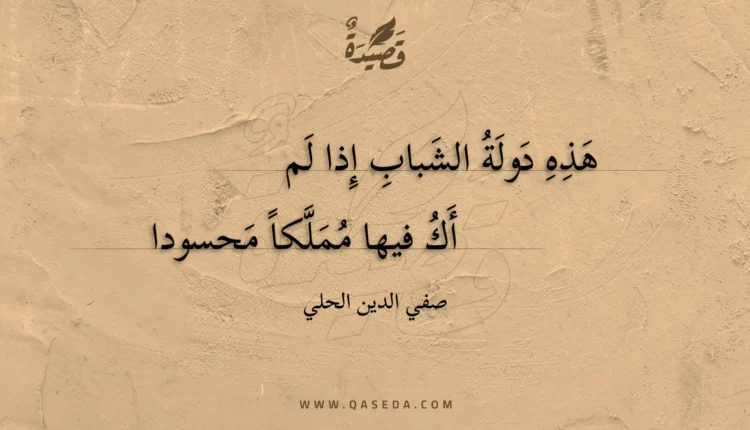 قَصِيدَةٌ
هَذِهِ دَولَةُ الشَبابِ إِذا لَم
أَكُ فيها مُمَلَّكاً مَحسودا
صفي الدين الحلي
WWW.QASEDA.COM